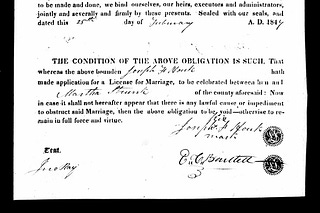 to be made and done, we bind ourselves, our heirs, executors and administrators,
jointly and severally and firmly by these presents. Sealed with our seals, and
dated this 25th day of February A. D. 184
THE CONDITION OF THE ABOVE OBLIGATION IS SUCH. That
whereas the above bounden Joseph H. Houk hath
made application for a License for Marriage, to be celebrated between him and
Martha of the county aforesaid: Now
in case it shall not hereafter appear that there is any lawful cause or impediment
to obstruct said Marriage, then the above obligation to be void—otherwise to re-
main in full force and virtue.
his
Joseph H. Houk
mark
Test.
Jno Kay
E. C. Bartlett